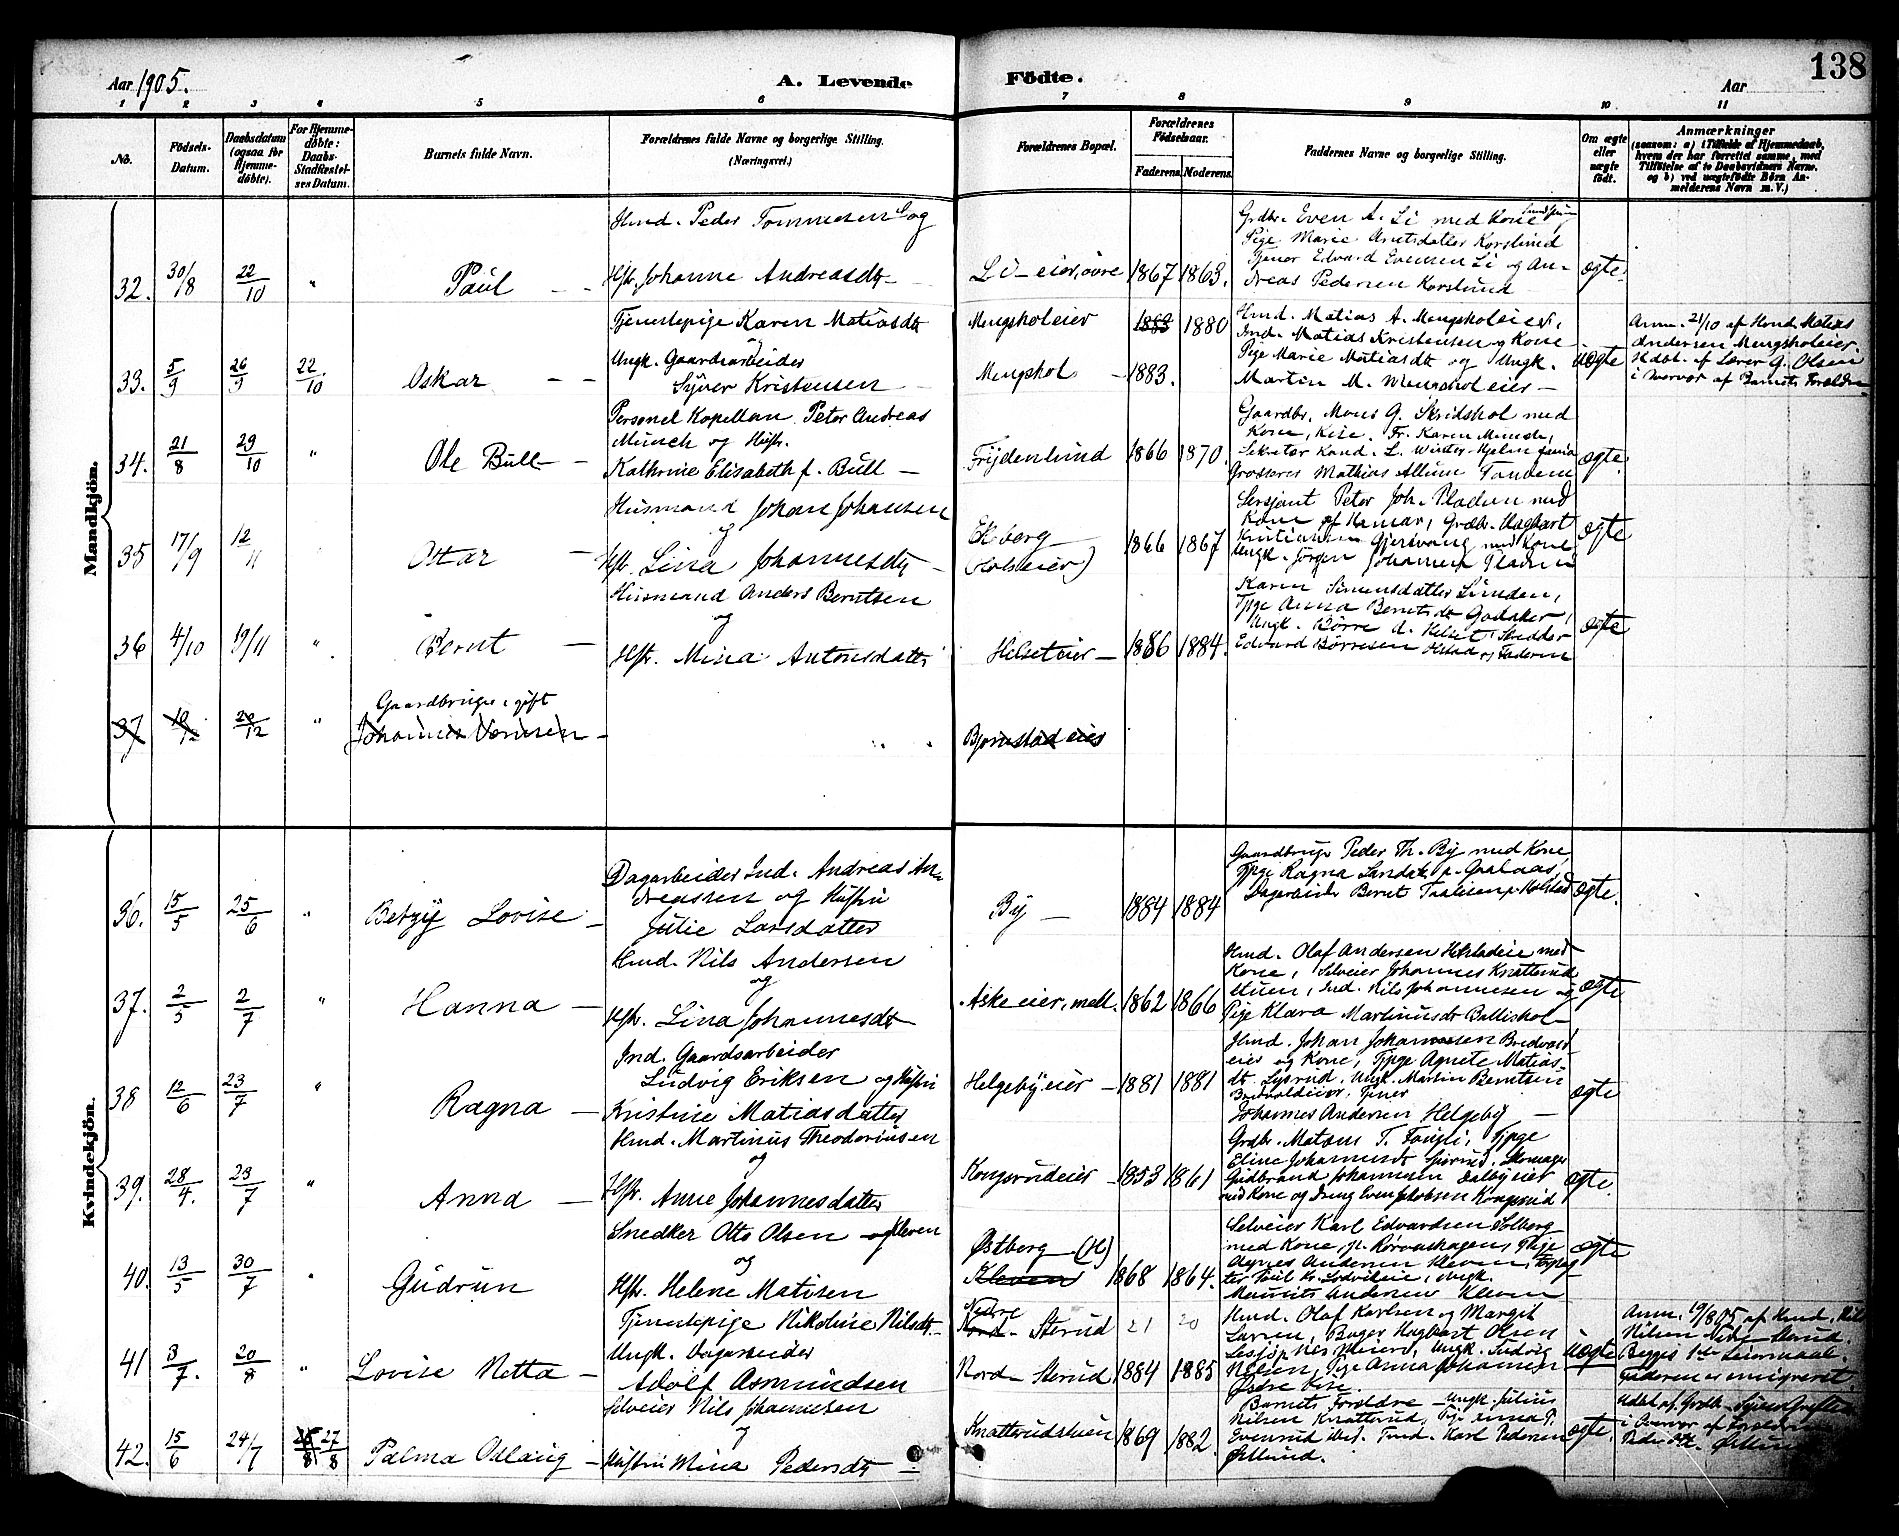 138
Aar 1905. A. Levende Födte. Aar
1 2 3 4 5 6 7 8 9 10 11
No.
Födsels-Datum.
Daabsdatum (ogsaa for Hjemme-döbte).
For Hjemme-döbte: Daabs-Stadfæstel-ses Datum.
Barnets fulde Navn.
Forældrenes fulde Navne og borgerlige Stilling.
(Næringsvei.)
Forældrenes Bopæl.
Forældrenes Födselsaar.
Faderens. Moderens.
Faddernes Navne og borgerlige Stilling.
Om ægte eller uægte födt.
Anmærkninger
(saasom: a) i Tilfælde af Hjemmedaab, hvem der har forrettet samme, med Tilföielse af to Daabsvidners Navne. og b) ved uægtefödte Börn Anmelderens Navn m. V.)
Mandkjön.
32. 30/8 22/10 " Paul - -
Hmd. Peder Tommesen og
Hstr. Johanne Andreasdtr
Li-eier, övre 1867 1863.
Grdbr. Even A. Li med Kone
Pige Marie Arntsdatter Korslund
Tjener Edvard Evensen Li og An-
dreas Pedersen Korslund
ægte.
33. 5/9 26/9 22/10 Oskar - -
Tjenestepige Karen Matiasdtr
og
Ungk. Gaardsarbeider
Syver Kristensen
Mengsholeier 1880
Mengshol - 1883.
Hmd. Matias A. Mengsholeier,
Ind. Matias Kristensen og Kone
Pige Marie Matiasdtr og Ungk.
Martin M. Mengsholeier -
uægte
Anm. 21/10 af Hmd. Matias
Andersen Mengsholeier.
Hdbt. af Lærer G. Olsen
i Nærvær af Barnets Forældre
34. 21/8 29/10 " Ole Bull -
Personel Kapellan Peter Andreas
Munch og Hustr.
Kathrine Elisabeth f. Bull -
Frydenlund 1866 1870.
Gaardbr. Mons G. Skridshol med
Kone, Kise. Fr. Karen Munch,
Sekretær Kand. L. Winter-Hjelm
Grosserer Mathias Allum Fanden
ægte.
35 17/9 12/11 Ottar -
Husmand Johan Johansen
og
Hstr. Lina Johannesdtr -
Ekberg
(Holseier) 1866 1867
Sersjant Peter Joh. Pladsen med
Kone af Hamar, Grdbr. Hagbart
Kristiansen Gjersvang med Kone
Ungk. Jörgen Johannesen Pladsen
ægte
36 4/10 19/11 " Bernt -
Husmand Anders Berntsen
og
Hstr. Mina Antonsdatter
Helseteier - 1886 1884.
Karen Simensdatter Linden,
Tjpge Anna Berntsdtr Godaker,
Ungk. Börre A. Helset, Skrædder
Edvard Börresen Olstad og Faderen
ægte
37 20/12 "
Gaardbruger, gift
Bjørnstadeier
Kvindekjön.
36. 15/5 25/6 " Betzy Lovise -
Dagarbeider Ind. Andreas An-
dreassen og Hustru
Julie Larsdatter
By - 1884 1884
Gaardbruger Peder Th. By med Kone,
Tjpge Ragna
Dagarbeider Bernt
ægte.
37. 2/5 2/7 " Hanna -
Hmd. Nils Andersen
og
Hstr. Lina Johannesdtr
Askeeier, mell. 1862 1866
Hmd. Olaf Andersen med
Kone, Selveier Johannes Knatterud
stuen, Ind. Nils Johannesen og
Pige Klara Martinusdtr Ballishol
ægte
38 12/6 23/7 " Ragna -
Ind. Gaardsarbeider
Ludvig Eriksen og Hustru
Kristine Matiasdatter
Helgebyeier - 1881 1881
Hmd. Johan Johannesen Bredvold
eier og Kone, Tjpge Agnete Matias-
dtr. Lysrud, Ungk. Martin Berntsen
Bredvoldeier, Tjener
Johannes Andersen Helgeby -
ægte
39. 28/4. 23/7 " Anna -
Hmd. Martinus Theodoriusen
og
Hstr. Anne Johannesdatter
Kongsrudeier - 1853 1861
Grdbr. Matæus T. Fougli, Tjpge
Eline Johannesdt Sjørud, Skomager
Gudbrand Johannesen Dalbyeier
med Kone og Dreng Even Jakobsen Kongsrud
ægte.
40. 13/5 30/7 " Gudrun
Snedker Otto Olsen Kleven
og
Hstr. Helene Matisen
Østberg (H)
Kleven 1868 1864.
Selveier Karl Edvardsen Solberg
med Kone, p. Rörvashagen, Pige
Agnes Andersen Kleven,
Ungk.
Mauritz Andersen Kleven
ægte
41 3/7. 20/8 " Lovise Netta -
Tjenestepige Nikoline Nilsdtr.
Ungk. Dagarbeider
Adolf Asmundsen
Nedre
Nord- Sterud 21 20
Nord- Sterud 1884 1885
Hmd. Olaf Karlsen og Margit
Larsen, Bager Hagbart Olsen
Ungk. Ludvig
Nilsen, Pige Anna Johansen
Østre Kise.
uægte
Anm. 19/8 05 af Hmd. Nils
Nilsen Nedre Sterud.
Begges 1ste Leiermaal.
Faderen er emigreret.
42. 15/6 24/7 27/8 Palma Oslaug -
Selveier Nils Johannesen
og
Hustru Mina Pedersdtr -
Knatterudstuen 1869 1882.
Barnets Forældre - Ungk. Julius
Nilsen Knatterud, Pige Anna P.
Evenrud Karl Pedersen
Østlund.
ægte.
i Nærvær af Forældrene